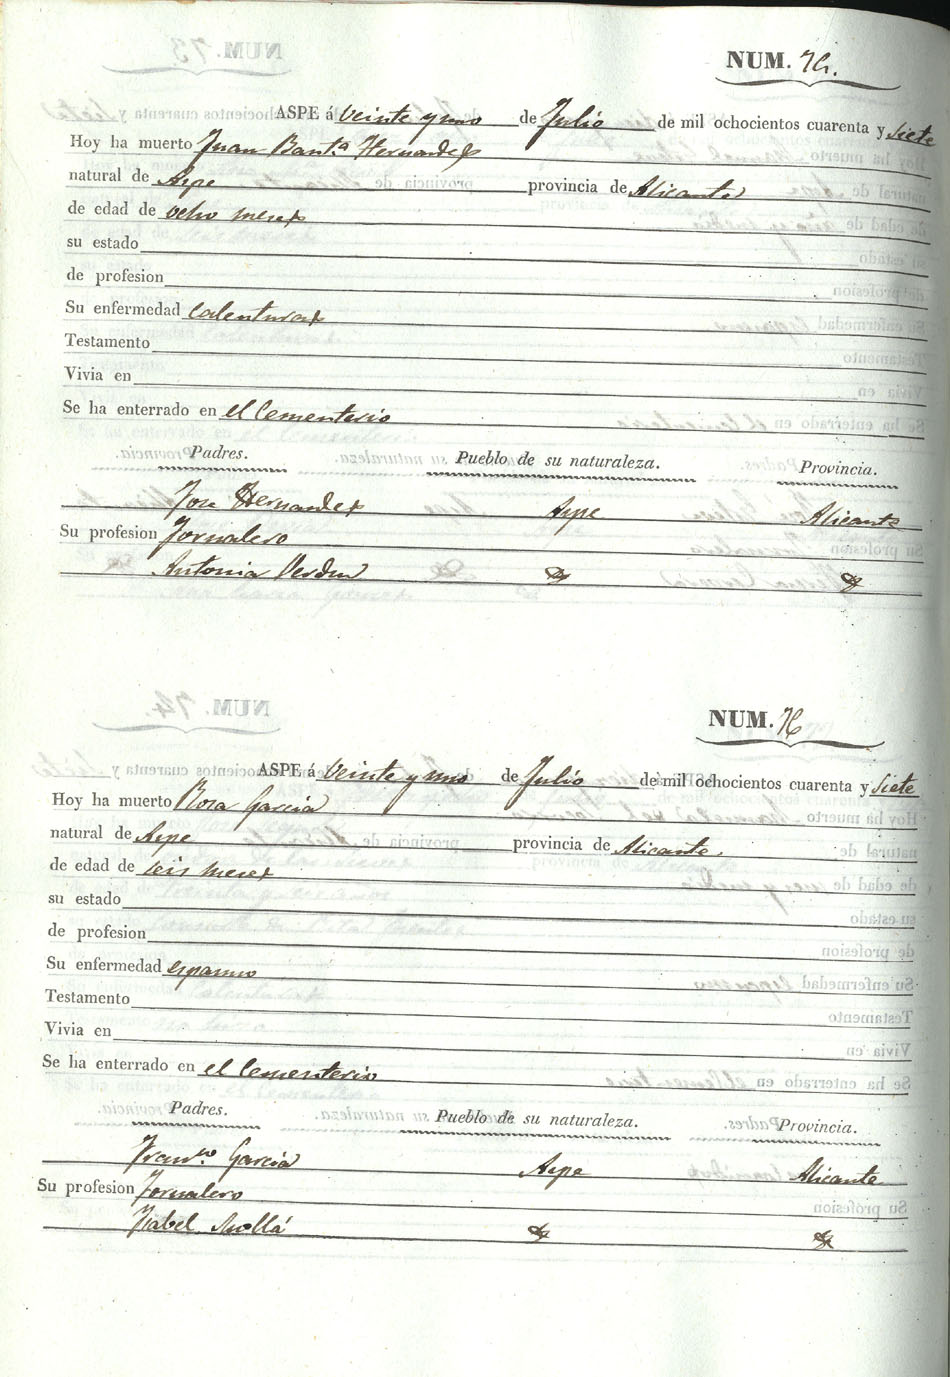 NUM. 75.
ASPE á veinte y uno de Julio de mil ochocientos cuarenta y siete
Hoy ha muerto Juan Baut.ª Hernandez
natural de Aspe provincia de Alicante
de edad de ocho meses
su estado
de profesion
Su enfermedad calenturas
Testamento
Vivia en
Se ha enterrado en el Cementerio
Padres. Pueblo de su naturaleza. Provincia.
Jose Hernandez Aspe Alicante
Su profesion Jornalero
Antonia Verdu
NUM. 76
ASPE á veinte y uno de Julio de mil ochocientos cuarenta y siete
Hoy ha muerto Rosa Garcia
natural de Aspe provincia de Alicante.
de edad de seis meses
su estado
de profesion
Su enfermedad espasmo
Testamento
Vivia en
Se ha enterrado en el Cementerio
Padres. Pueblo de su naturaleza. Provincia.
Fran.co Garcia Aspe Alicante
Su profesion Jornalero
Isabel Mollá